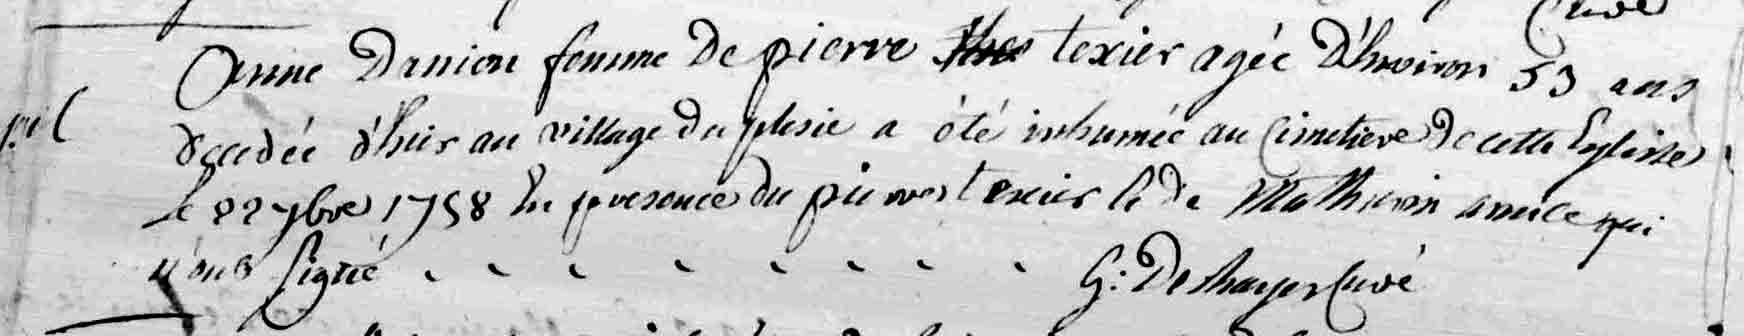 Curé
Anne Danion femme De pierre texier agée D'houiron 53 ans
decedée d'hier au village du plesie a été inhumée au Cimetiere De cette Eglise
Le 22 7bre 1758 En presence du pierre texier & De Mathurin qui
n'ont signé
G: Deshayes Curé